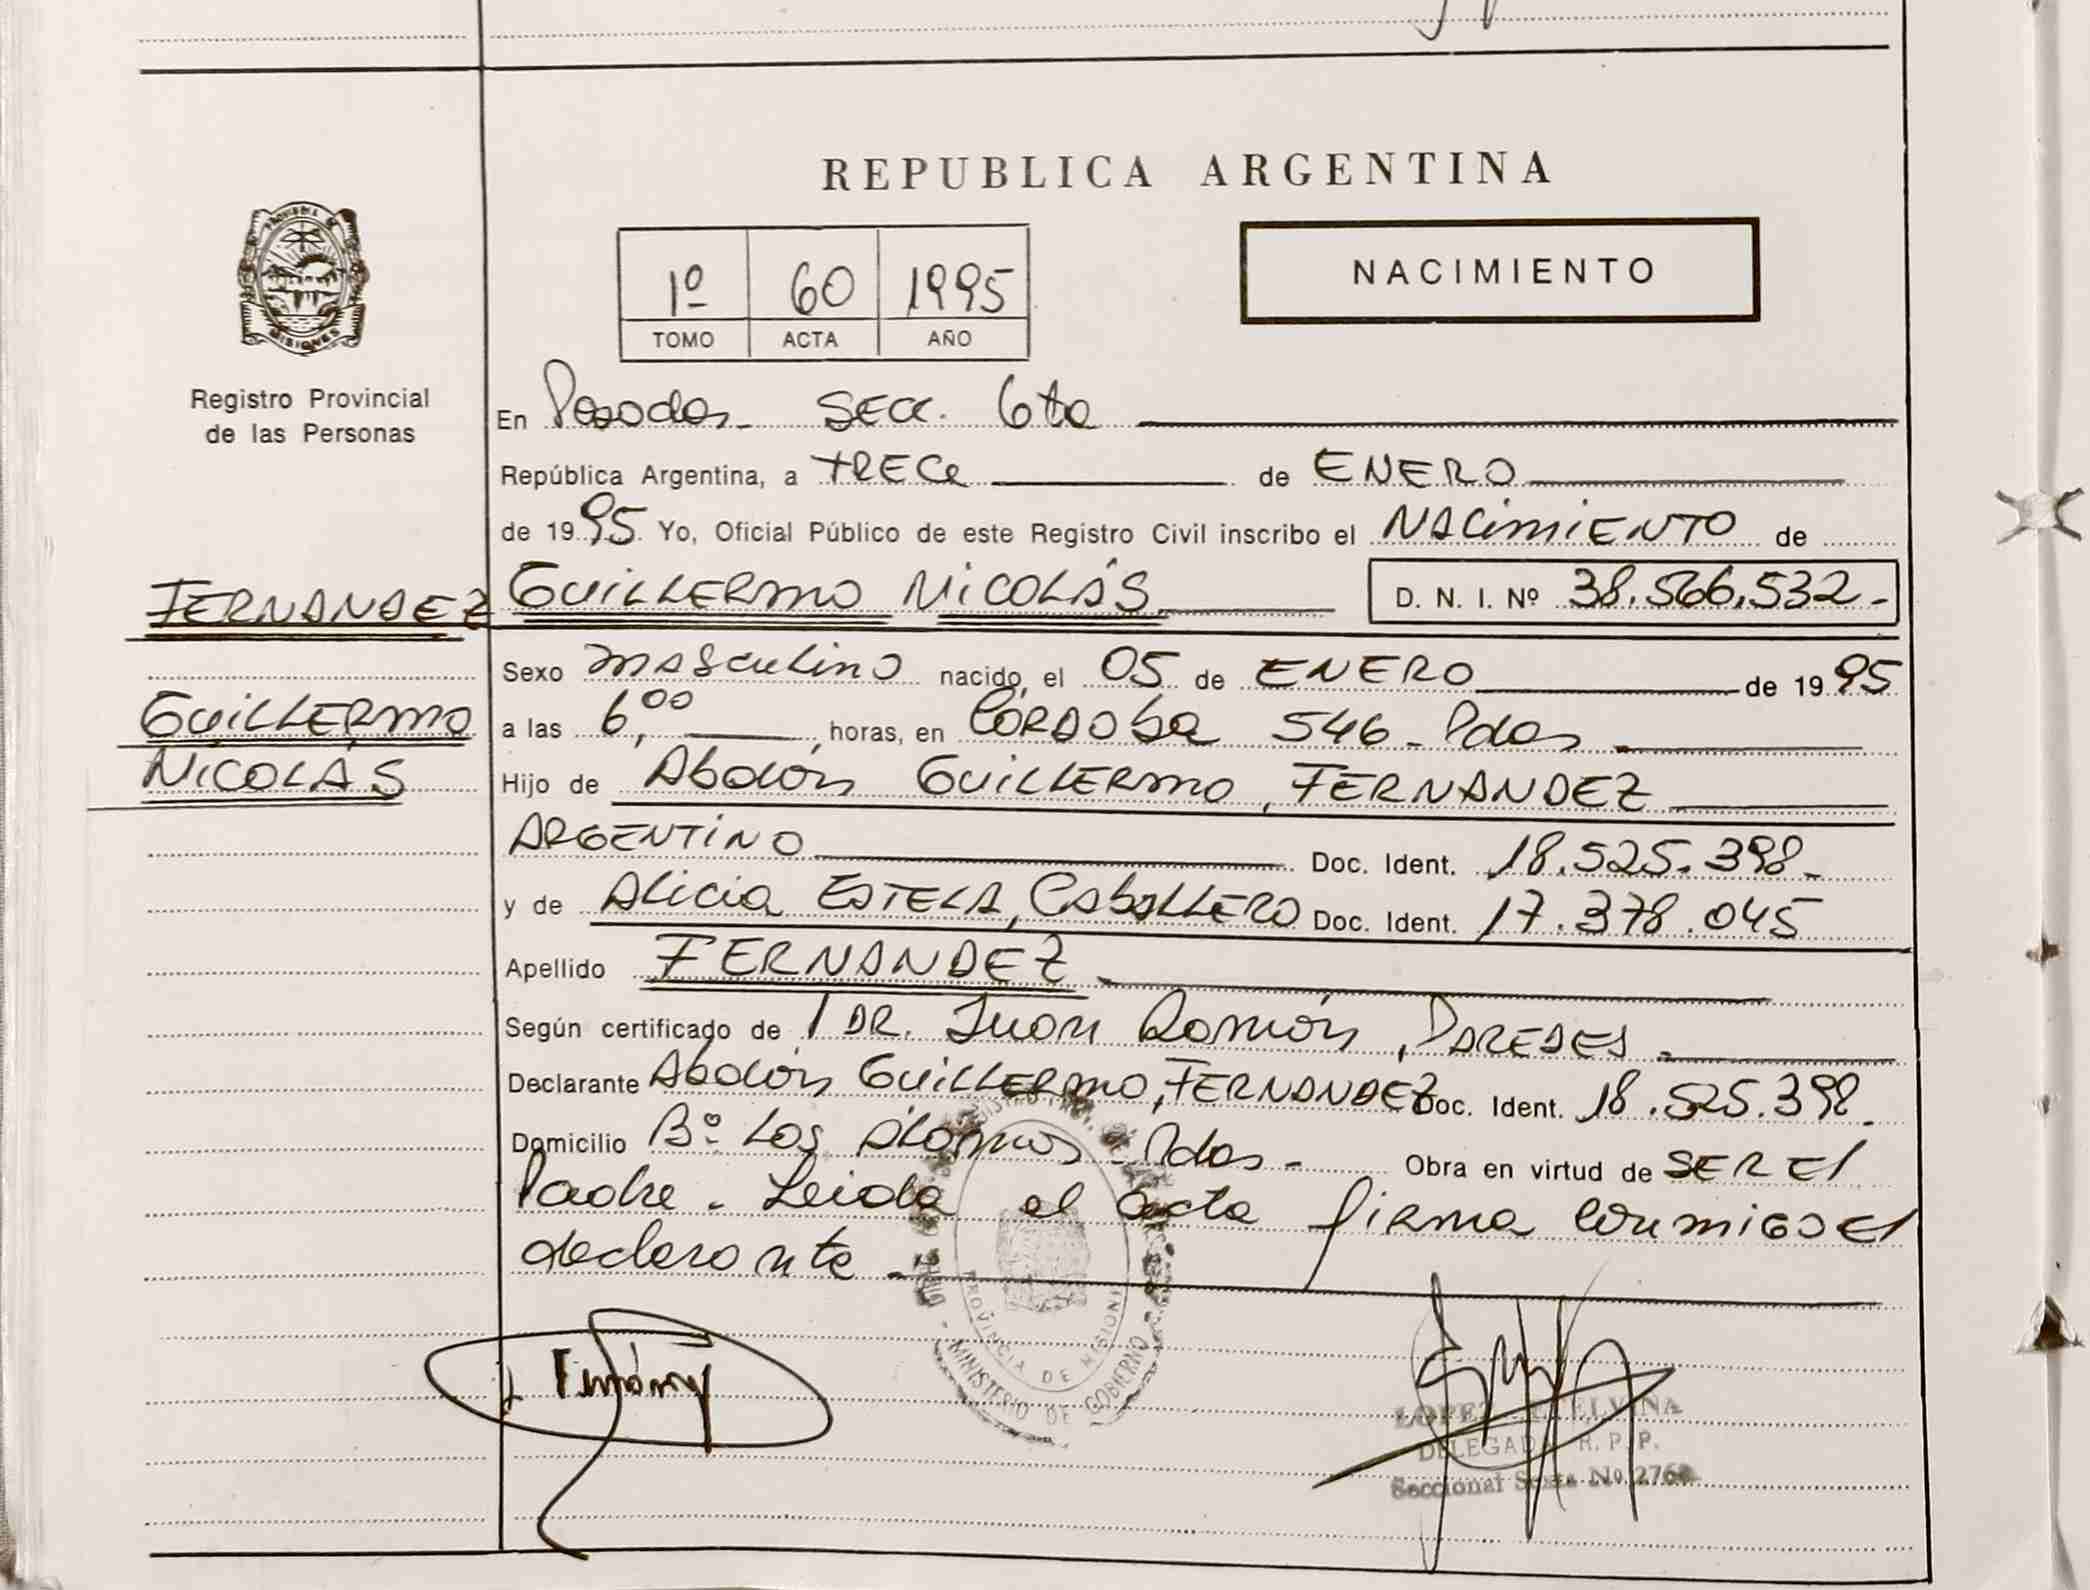 REPUBLICA ARGENTINA
PROVINCIA
MISIONES
Registro Provincial
de las Personas
1º 60 1995
TOMO ACTA AÑO
NACIMIENTO
En Posadas - SECC. 6ta
República Argentina, a TRECE de ENERO
de 1995 Yo, Oficial Público de este Registro Civil inscribo el NACIMIENTO de
FERNANDEZ GUILLERMO NICOLÁS D. N. I. Nº 38.566.532-
Sexo MASCULINO nacido el 05 de ENERO de 1995
GUILLERMO
NICOLÁS
a las 6,00 horas, en CÓRDOBA 546 - Pdas
Hijo de Abdón GUILLERMO, FERNANDEZ
ARGENTINO Doc. Ident. 18.525.398-
y de Alicia ESTELA, CABALLERO Doc. Ident. 17.378.045
Apellido FERNANDEZ -
Según certificado de DR. Juan Ramón, PAREDES -
Declarante Abdón GUILLERMO, FERNANDEZ Doc. Ident. 18.525.398
Domicilio Bº Los Álamos - Pdas - Obra en virtud de SER El
Padre - Leida el acta firma conmigo el
declarante -
PROVINCIA DE MISIONES
MINISTERIO DE GOBIERNO
LOPEZ ETELVINA
DELEGADA R. P. P.
Seccional Sexta Nº